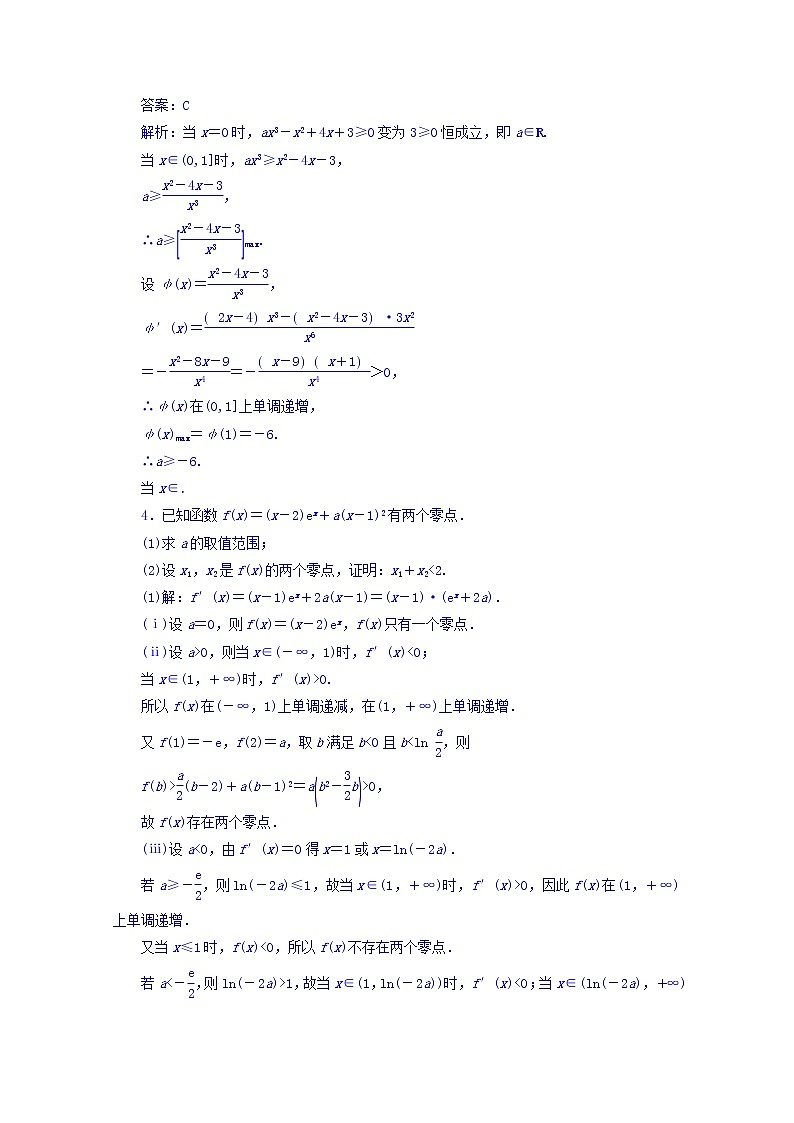 答案：C
解析：当 x＝0时，ax³－x²＋4x＋3≥0变为3≥0恒成立，即 a∈R.
当 x∈(0,1]时，ax³≥x²－4x－3，
a≥\frac{x²－4x－3}{x³}，
∴a≥[\frac{x²－4x－3}{x³}]max.
设 φ(x)＝\frac{x²－4x－3}{x³}，
φ′(x)＝\frac{( 2x－4) x³－( x²－4x－3) ·3x²}{x⁶}
＝－\frac{x²－8x－9}{x⁴}＝－\frac{( x－9) ( x＋1)}{x⁴}＞0，
∴φ(x)在(0,1]上单调递增，
φ(x)max＝φ(1)＝－6.
∴a≥－6.
当 x∈.
4．已知函数 f(x)＝(x－2)eˣ＋a(x－1)²有两个零点．
(1)求 a的取值范围；
(2)设 x₁，x₂是 f(x)的两个零点，证明：x₁＋x₂<2.
(1)解：f′(x)＝(x－1)eˣ＋2a(x－1)＝(x－1)·(eˣ＋2a)．
(ⅰ)设 a＝0，则 f(x)＝(x－2)eˣ，f(x)只有一个零点．
(ⅱ)设 a>0，则当 x∈(－∞，1)时，f′(x)<0；
当 x∈(1，＋∞)时，f′(x)>0.
所以 f(x)在(－∞，1)上单调递减，在(1，＋∞)上单调递增．
又 f(1)＝－e，f(2)＝a，取 b满足 b<0且 b<ln \frac{a}{2}，则
f(b)>\frac{a}{2}(b－2)＋a(b－1)²＝a(b²－\frac{3}{2}b)>0，
故 f(x)存在两个零点．
(ⅲ)设 a<0，由 f′(x)＝0得 x＝1或 x＝ln(－2a)．
若 a≥－\frac{e}{2}，则 ln(－2a)≤1，故当 x∈(1，＋∞)时，f′(x)>0，因此 f(x)在(1，＋∞)
上单调递增．
又当 x≤1时，f(x)<0，所以 f(x)不存在两个零点．
若 a<－\frac{e}{2}，则 ln(－2a)>1，故当 x∈(1，ln(－2a))时，f′(x)<0；当 x∈(ln(－2a)，＋∞)